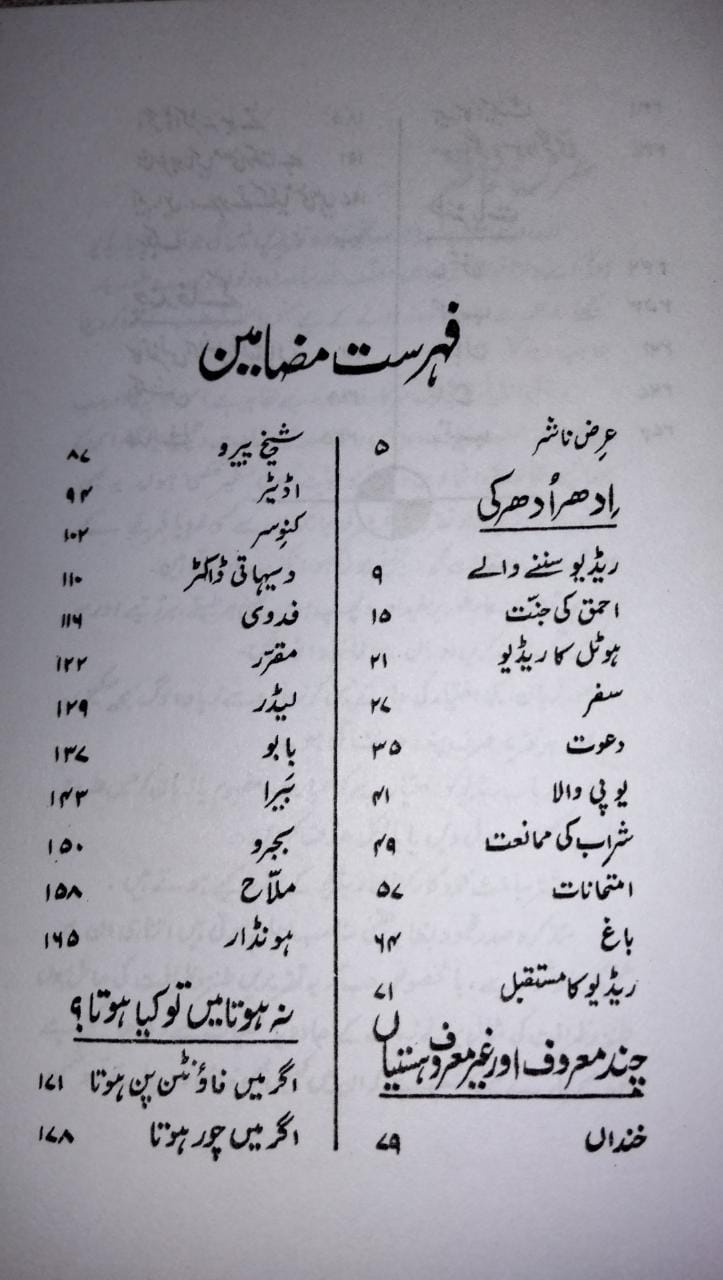 فہرست مضامین
عرض ناشر ۵
اِدھر اُدھر کی
ریڈیو سننے والے ۹
احمق کی جنّت ۱۵
ہوٹل کا ریڈیو ۲۱
سفر ۲۷
دعوت ۳۵
یو پی والا ۴۱
شراب کی ممانعت ۴۹
امتحانات ۵۷
باغ ۶۴
ریڈیو کا مستقبل ۷۱
چند معروف اور غیر معروف ہستیاں
خنداں ۷۹
شیخ پیرو ۸۷
اڈیٹر ۹۴
کنوِسر ۱۰۲
دیہاتی ڈاکٹر ۱۱۰
فدوی ۱۱۶
مقرّر ۱۲۲
لیڈر ۱۲۹
بابو ۱۳۷
بَیرا ۱۴۳
بجرو ۱۵۰
ملاّح ۱۵۸
ہونڈار ۱۶۵
نہ ہوتا میں تو کیا ہوتا؟
اگر میں فاؤنٹن پن ہوتا ۱۷۱
اگر میں چور ہوتا ۱۷۸